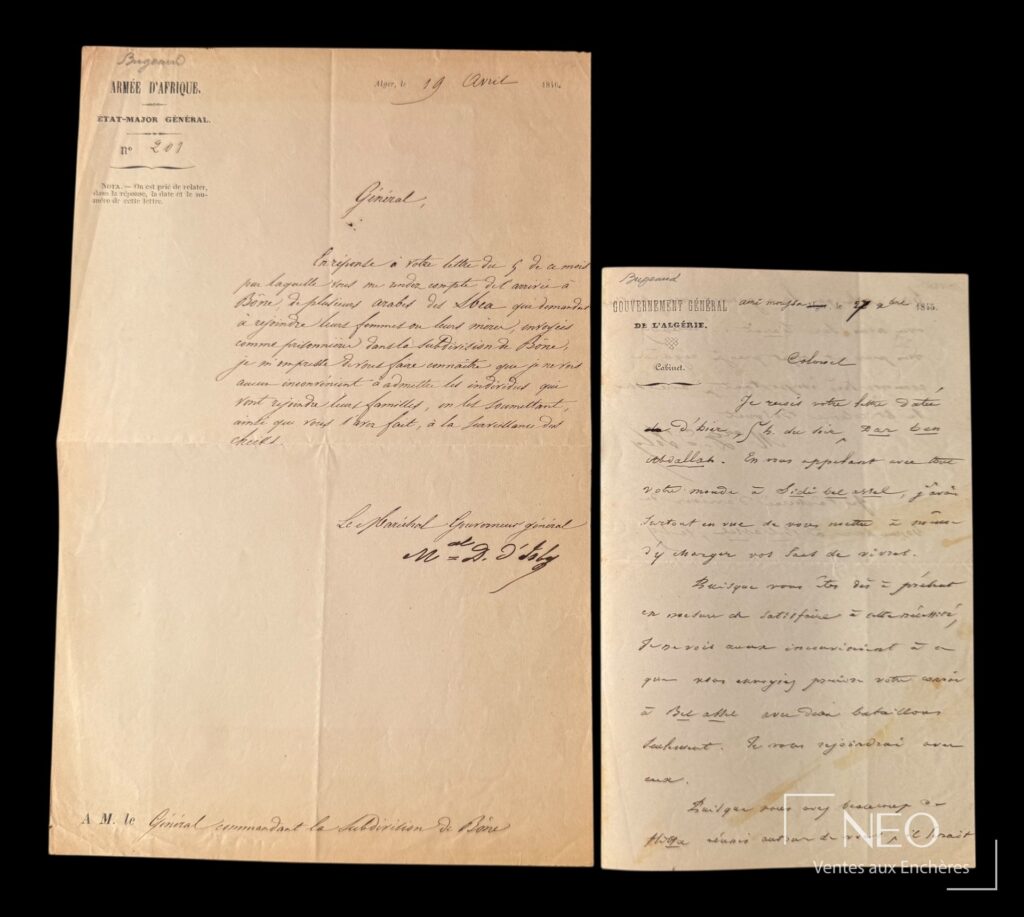 Bugeaud
ARMÉE D'AFRIQUE.
ETAT-MAJOR GÉNÉRAL.
n° 201
NOTA. — On est prié de relater,
dans la réponse, la date et le nu-
méro de cette lettre.
Alger, le 19 Avril 1846.
Général,
En réponse à votre lettre du 5 de ce mois
par laquelle vous me rendez compte de l'arrivée à
Bône, de plusieurs arabes des qui demandent
à rejoindre leurs femmes ou leurs mères, envoyées
comme prisonnières dans la Subdivision de Bône,
je m'empresse de vous faire connaître que je ne vois
aucun inconvénient à admettre les individus qui
vont rejoindre leurs familles, en les soumettant,
ainsi que vous l'avez fait, à la surveillance des
cheiks.
Le Maréchal Gouverneur général
Mal D. d'Isly
A M. le Général commandant la Subdivision de Bône
Bugeaud
GOUVERNEMENT GÉNÉRAL
DE L'ALGÉRIE.
Cabinet.
le 27 xbre 1845.
Colonel
Je reçois votre lettre datée
d'hier, 5 h. du soir, Dar ben
Abdallah. En vous appelant avec tout
votre monde à Sidi bel assel, j'avais
surtout en vue de vous mettre à même
d'y charger vos sacs de vivres.
Puisque vous êtes dès à présent
en mesure de satisfaire à cette nécessité,
Je ne vois aucun inconvénient à ce
que vous envoyiez prendre votre convoi
à Bel assel avec deux bataillons
seulement. Je vous rejoindrai avec
eux.
Puisque vous avez beaucoup de
réunis autour de vous, il serait
NEO
Ventes aux Enchères